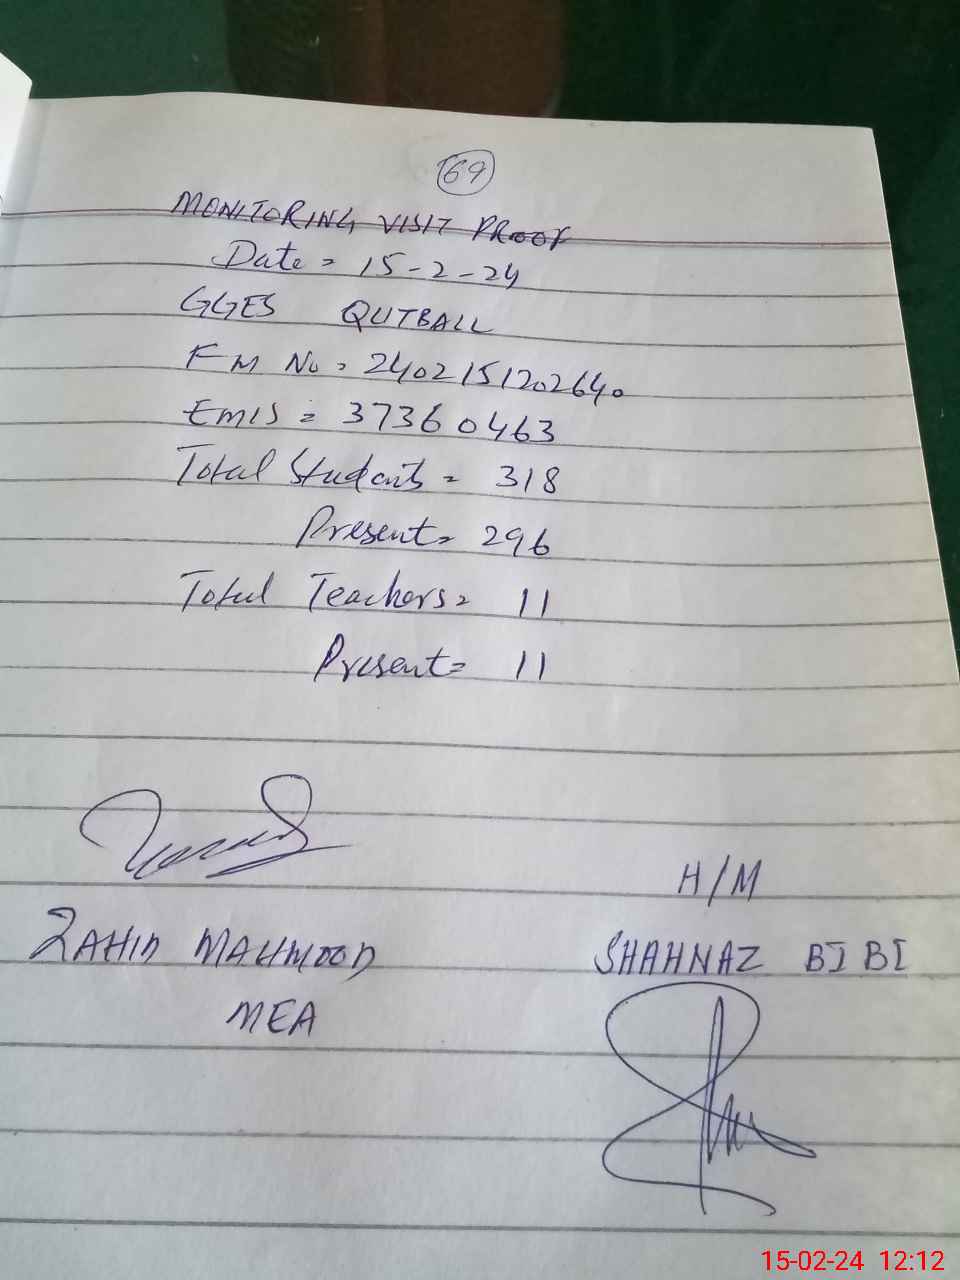 69
MONITORING VISIT PROOF
Date = 15-2-24
GGES QUTBALL
FM No = 2402151202640
EMIS = 37360463
Total Students = 318
Present = 296
Total Teachers = 11
Present = 11
H/M
ZAHID MAHMOOD SHAHNAZ BIBI
MEA
15-02-24 12:12